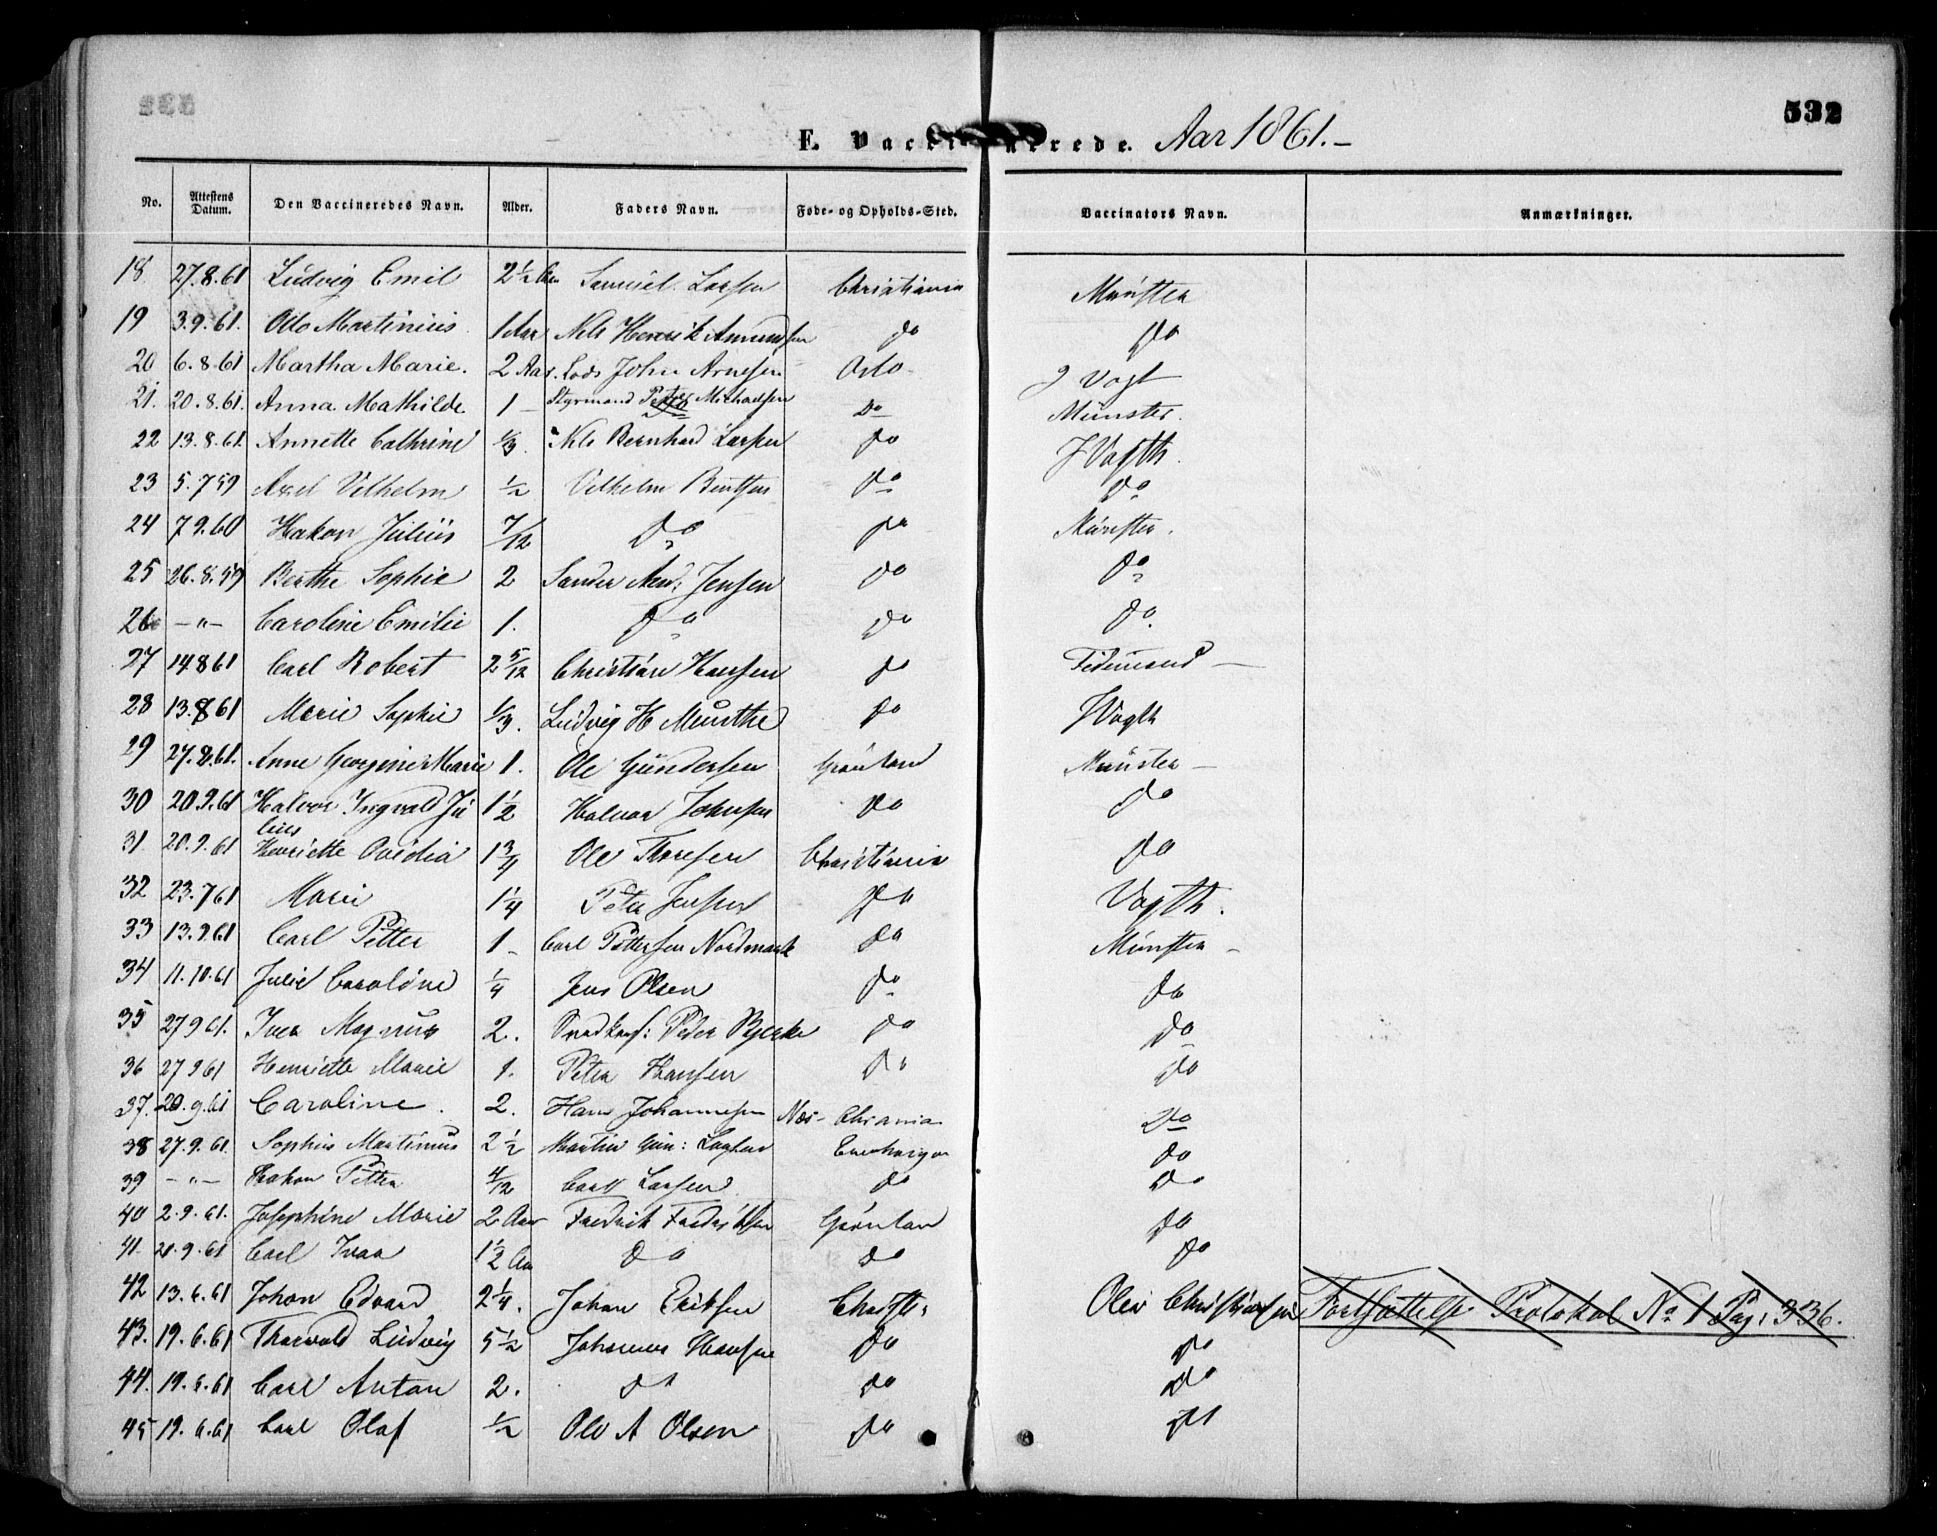 532
F. Vaccinerede. Aar 1861.-
No. Attestens Datum. Den Vaccineredes Navn. Alder. Faders Navn. Føde- og Opholds-Sted. Vaccinators Navn. Anmærkninger.
18 27.8.61 Ludvig Emil 2 1/2 Aar Samuel Larsen Christiania Münster
19 3.9.61. Otto Martinius 1 Aar Nils Henrik Amundsen do do
20 6.8.61 Martha Marie. 2 Aar. Lods John Arnesen Oslo J Vogt
21. 20.8.61. Anna Mathilde 1 - Styrmand Peter Michaelsen Do Münster.
22 13.8.61. Annette Cathrine 1/3. Nils Bernhard Larsen do J Vogth.
23 5.7 59 Axel Vilhelm 1/2 Vilhelm Berntsen do do
24 7 9.60 Hakon Julius 7/12 do do Münster.
25 26.8.59 Berthe Sophie 2 Sander And: Jensen do do
26 -"- Caroline Emilie 1. do do do.
27 14 8 61 Carl Robert 2 5/12 Christian Hansen do Tidemand -
28 13.8 61 Marie Sophie 1/3. Ludvig H Münthe do J Vogth
29 27.8.61. Anne Georgine Marie 1. Ole Gundersen Grønland Münster -
30 20.9.61 Halvor Ingvald Ju 1 1/2 Halvor Johnsen do do
lius
31 20.9.61 Henriette Ovidia 1 3/4 Ole Thoresen Christiania do
32 23.7 61 Marie 1 1/4 Peter Jensen do Vogth.
33 13.9.61 Carl Petter 1 - Carl Pettersen Nordmark do Münster -
34 11.10.61 Julie Caroline 1/4 Jens Olsen do do
35 27 9 61. Iver Magnus 2. Peder Bjerke do do
36 27 9 61 Henriette Marie 1. Peter Hansen do do
37. 20.9.61 Caroline. 2. Hans Johannesen Næs- Chrania do
38 27.9.61. Sophus Martinius 2 1/2 Martin Gun: do
39 -"- Hakon Petter 4/12 Carl Larsen do do
40 2.9.61. Josephine Marie 2 Aar Fredrik Fredriksen Grønland do
41. 21.9.61 Carl Ivar 1 1/2 Aar do do do
42 13.6.61 Johan Edvard 2 1/4. Johan Eriksen Christ: Olev Christiansen Fortsættelse Protokol No 1 Pag: 336.
43. 19.6.61 Thorvald Ludvig 5 1/2 Johannes Hansen do do
44. 19.6.61 Carl Anton 2. do do do
45 19.6.61 Carl Olaf 1/2 Ole A Olsen do do